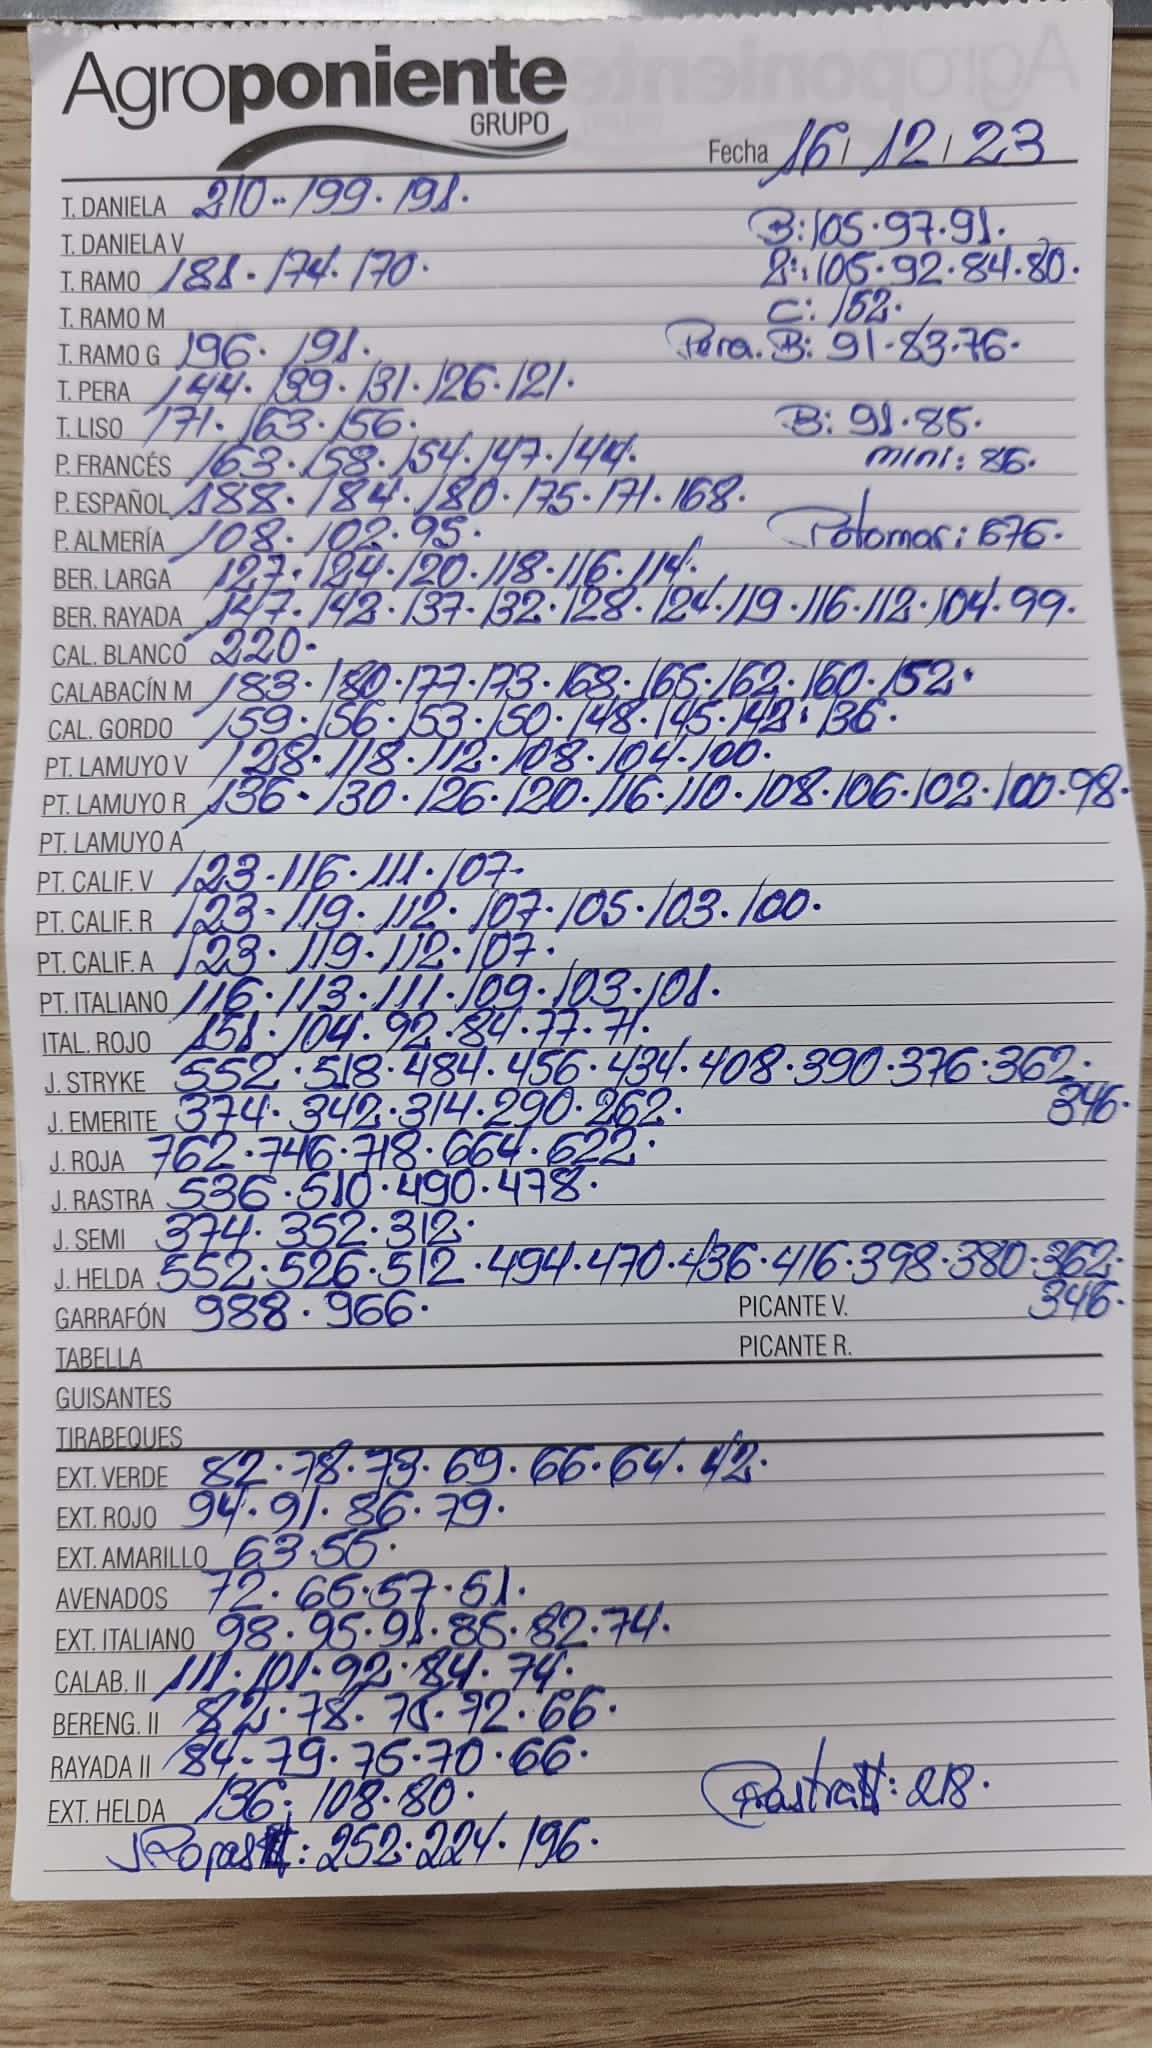 Agroponiente
GRUPO
Fecha 16/12/23
T. DANIELA 210·199·191.
T. DANIELA V B:105·97·91.
T. RAMO 181·174·170. 2ª:105·92·84·80.
T. RAMO M C: 152.
T. RAMO G 196·191. Pera. B: 91·83·76.
T. PERA 144·139·131·126·121.
T. LISO 171·163·156. B: 91·85.
P. FRANCÉS 163·158·154·147·144. mini: 86.
P. ESPAÑOL 188·184·180·175·171·168.
P. ALMERÍA 108·102·95. Potomar: 676.
BER. LARGA 127·124·120·118·116·114.
BER. RAYADA 147·142·137·132·128·124·119·116·112·104·99.
CAL. BLANCO 220.
CALABACÍN M 183·180·177·173·168·165·162·160·152.
CAL. GORDO 159·156·153·150·148·145·142·136.
PT. LAMUYO V 128·118·112·108·104·100.
PT. LAMUYO R 136·130·126·120·116·110·108·106·102·100·98.
PT. LAMUYO A
PT. CALIF. V 123·116·111·107.
PT. CALIF. R 123·119·112·107·105·103·100.
PT. CALIF. A 123·119·112·107.
PT. ITALIANO 116·113·111·109·103·101.
ITAL. ROJO 151·104·92·84·77·71.
J. STRYKE 552·518·484·456·434·408·390·376·362.
J. EMERITE 374·342·314·290·262. 346.
J. ROJA 762·746·718·664·622.
J. RASTRA 536·510·490·478.
J. SEMI 374·352·312.
J. HELDA 552·526·512·494·470·436·416·398·380·362.
GARRAFÓN 988·966. PICANTE V. 346.
TABELLA PICANTE R.
GUISANTES
TIRABEQUES
EXT. VERDE 82·78·73·69·66·64·42.
EXT. ROJO 94·91·86·79.
EXT. AMARILLO 63·55.
AVENADOS 72·65·57·51.
EXT. ITALIANO 98·95·91·85·82·74.
CALAB. II 111·101·92·84·74.
BERENG. II 82·78·75·72·66.
RAYADA II 84·79·75·70·66.
EXT. HELDA 136·108·80. RastraII: 218.
J RojasII: 252·224·196.